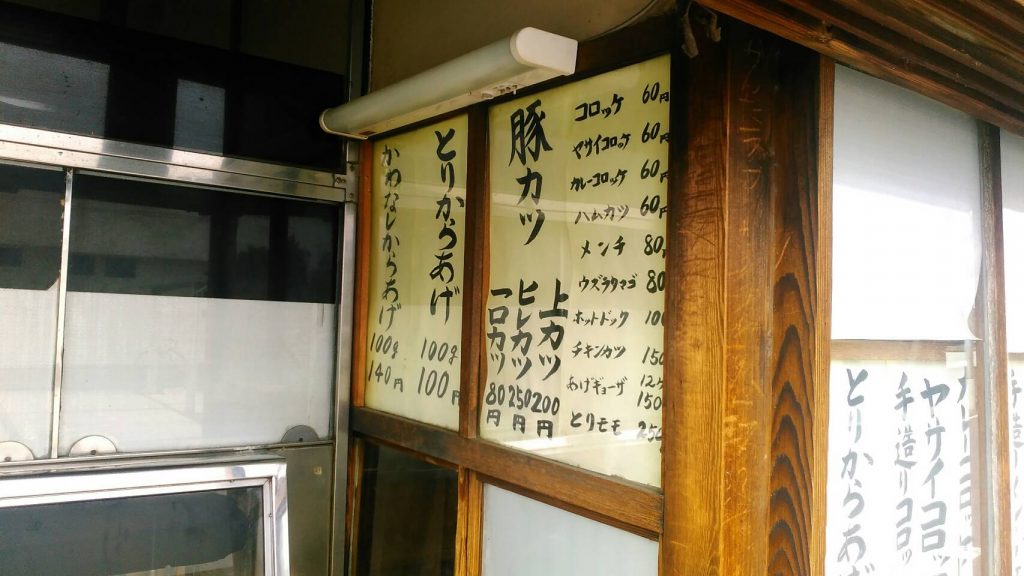 コロッケ 60円
ヤサイコロッケ 60円
カレーコロッケ 60円
ハムカツ 60円
メンチ 80円
ウズラタマゴ 80
ホットドック 100
チキンカツ 150
あげギョーザ 125 150
とりモモ 250
豚カツ
上カツ 200円
ヒレカツ 250円
一口カツ 80円
とりからあげ 100g 100円
かわなしからあげ 100g 140円
ヤサイコロッ
手造りコロッ
とりからあげ